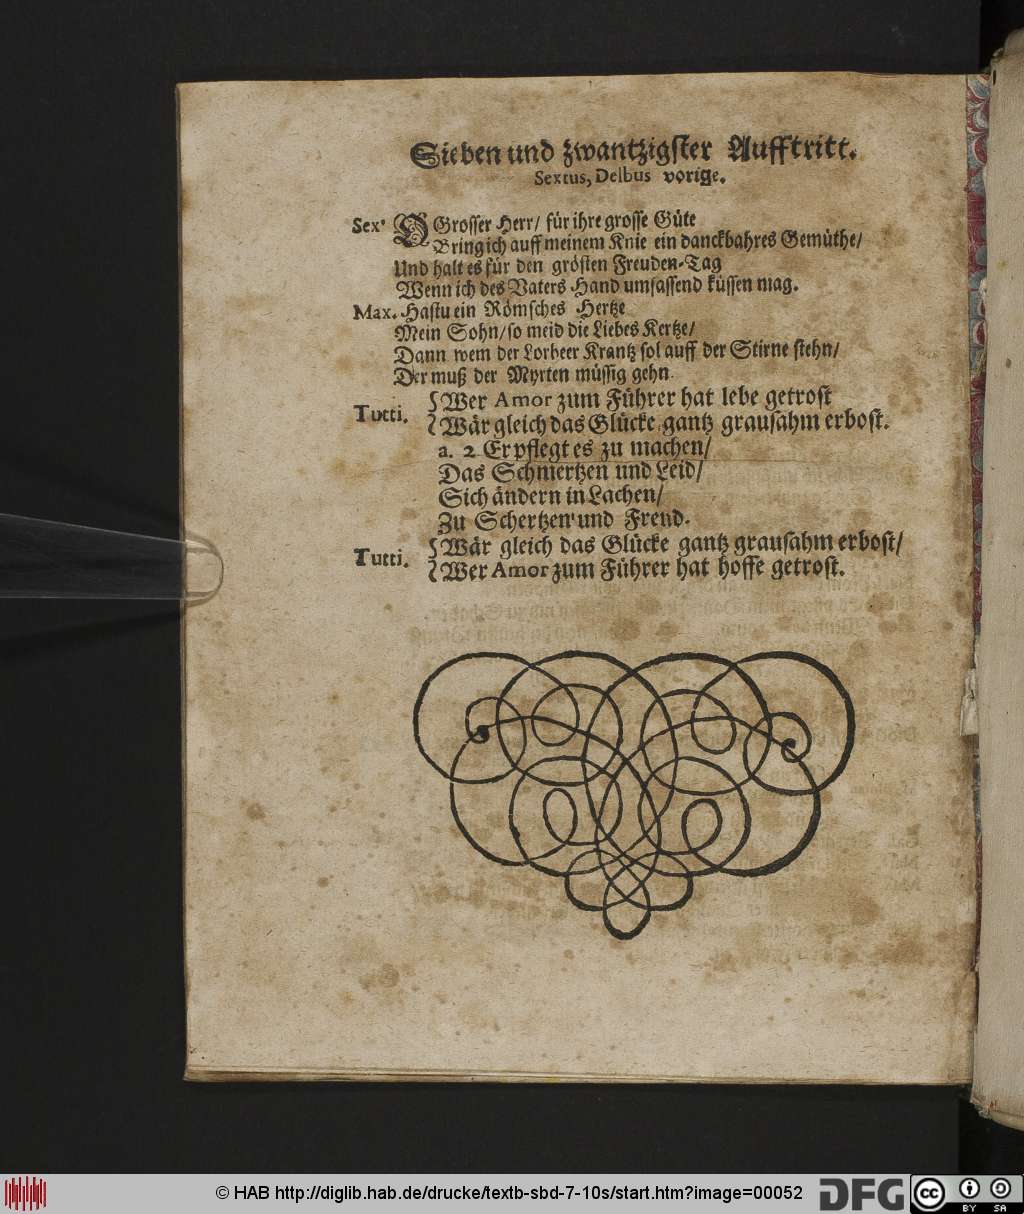 Sieben und zwantzigster Aufftritt.
Sextus, Delbus vorige.
Sex. O Grosser Herr/ für ihre grosse Güte
Bring ich auff meinem Knie ein danckbahres Gemüthe/
Und halt es für den grösten Freuden-Tag
Wenn ich des Vaters Hand umfassend küssen mag.
Max. Hastu ein Römsches Hertze
Mein Sohn/ so meid die Liebes Kertze/
Dann wem der Lorbeer Krantz sol auff der Stirne stehn/
Der muß der Myrten müssig gehn.
Tutti. { Wer Amor zum Führer hat lebe getrost
Wär gleich das Glücke gantz grausahm erbost.
a. 2 Er pflegt es zu machen/
Das Schmertzen und Leid/
Sich ändern in Lachen/
Zu Schertzen und Freud.
Tutti. { Wär gleich das Glücke gantz grausahm erbost/
Wer Amor zum Führer hat hoffe getrost.
© HAB http://diglib.hab.de/drucke/textb-sbd-7-10s/start.htm?image=00052
DFG
cc BY SA